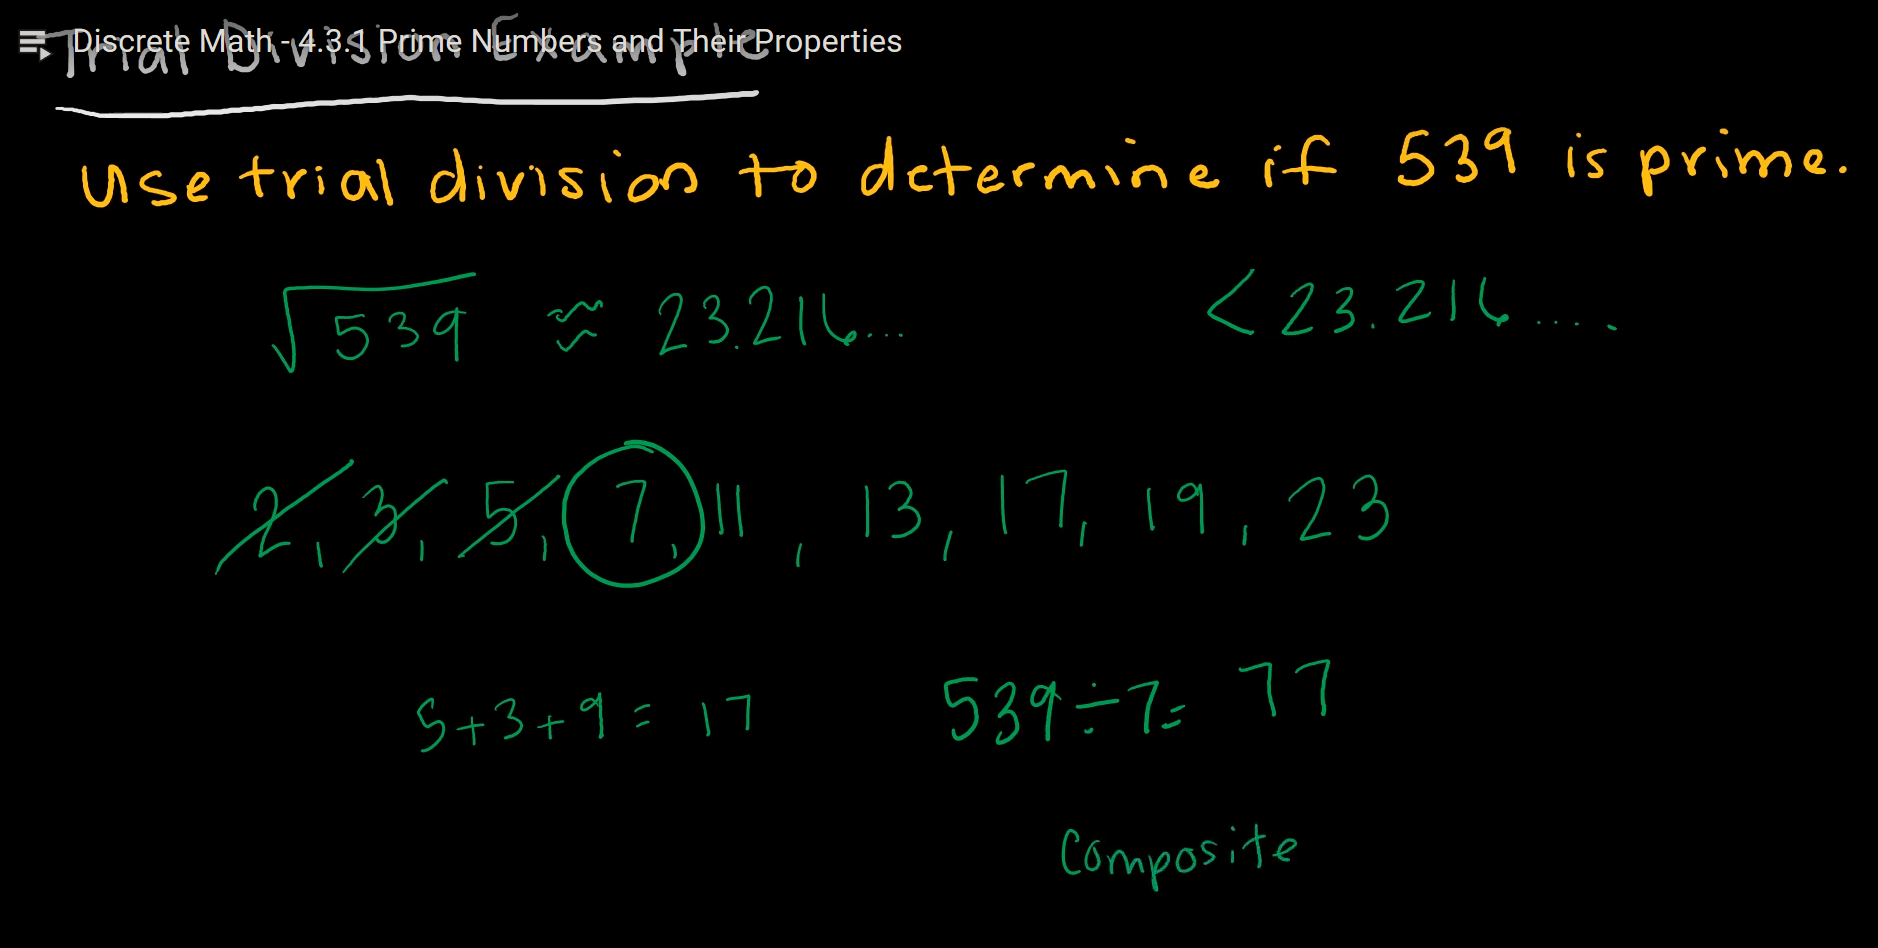 Discrete Math - 4.3.1 Prime Numbers and Their Properties
Trial Division Example
Use trial division to determine if 539 is prime.
√539 ≈ 23.216... < 23.216....
2, 3, 5, 7, 11, 13, 17, 19, 23
5+3+9 = 17 539÷7= 77
Composite